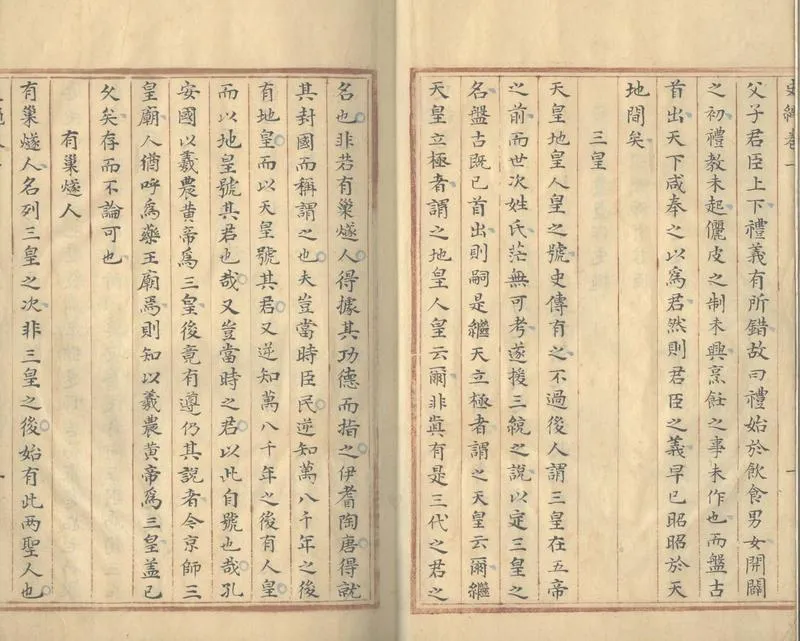 父子君臣上下禮義有所錯故曰禮始於飲食男女開闢
之初禮教未起儷皮之制未興烹飪之事未作也而盤古
首出天下咸奉之以爲君然則君臣之義早已昭昭於天
地間矣
三皇
天皇地皇人皇之號史傳有之不過後人謂三皇在五帝
之前而世次姓氏茫無可考遂援三統之說以定三皇之
名盤古旣已首出則嗣是繼天立極者謂之天皇云爾繼
天皇立極者謂之地皇人皇云爾非眞有是三代之君之
名也非若有巢燧人得據其功德而指之伊耆陶唐得就
其封國而稱謂之也夫豈當時臣民逆知萬八千年之後
有地皇而以天皇號其君又逆知萬八千年之後有人皇
而以地皇號其君也哉又豈當時之君以此自號也哉孔
安國以羲農黃帝爲三皇後竟有遵仍其說者今京師三
皇廟人猶呼爲藥王廟焉則知以羲農黃帝爲三皇蓋已
久矣存而不論可也
有巢燧人
有巢燧人名列三皇之次非三皇之後始有此两聖人也